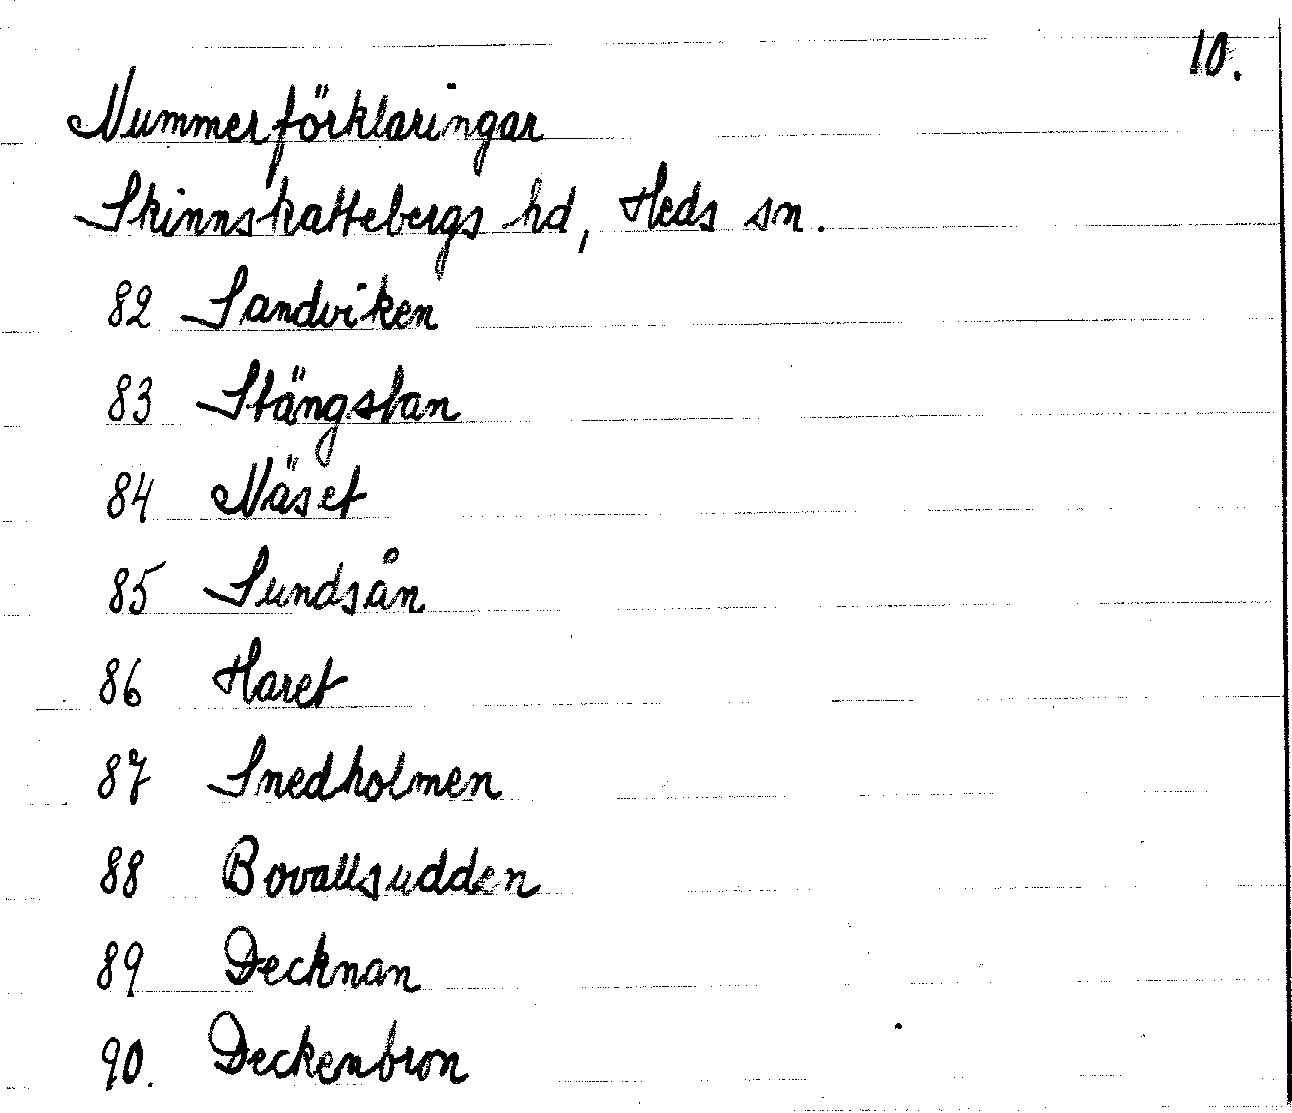 10.
Nummerförklaringar
Skinnskattebergs hd, Heds sn.
82 Sandviken
83 Stängstan
84 Näset
85 Sundsån
86 Haret
87 Snedholmen
88 Bovallsudden
89 Decknan
90. Deckenbron